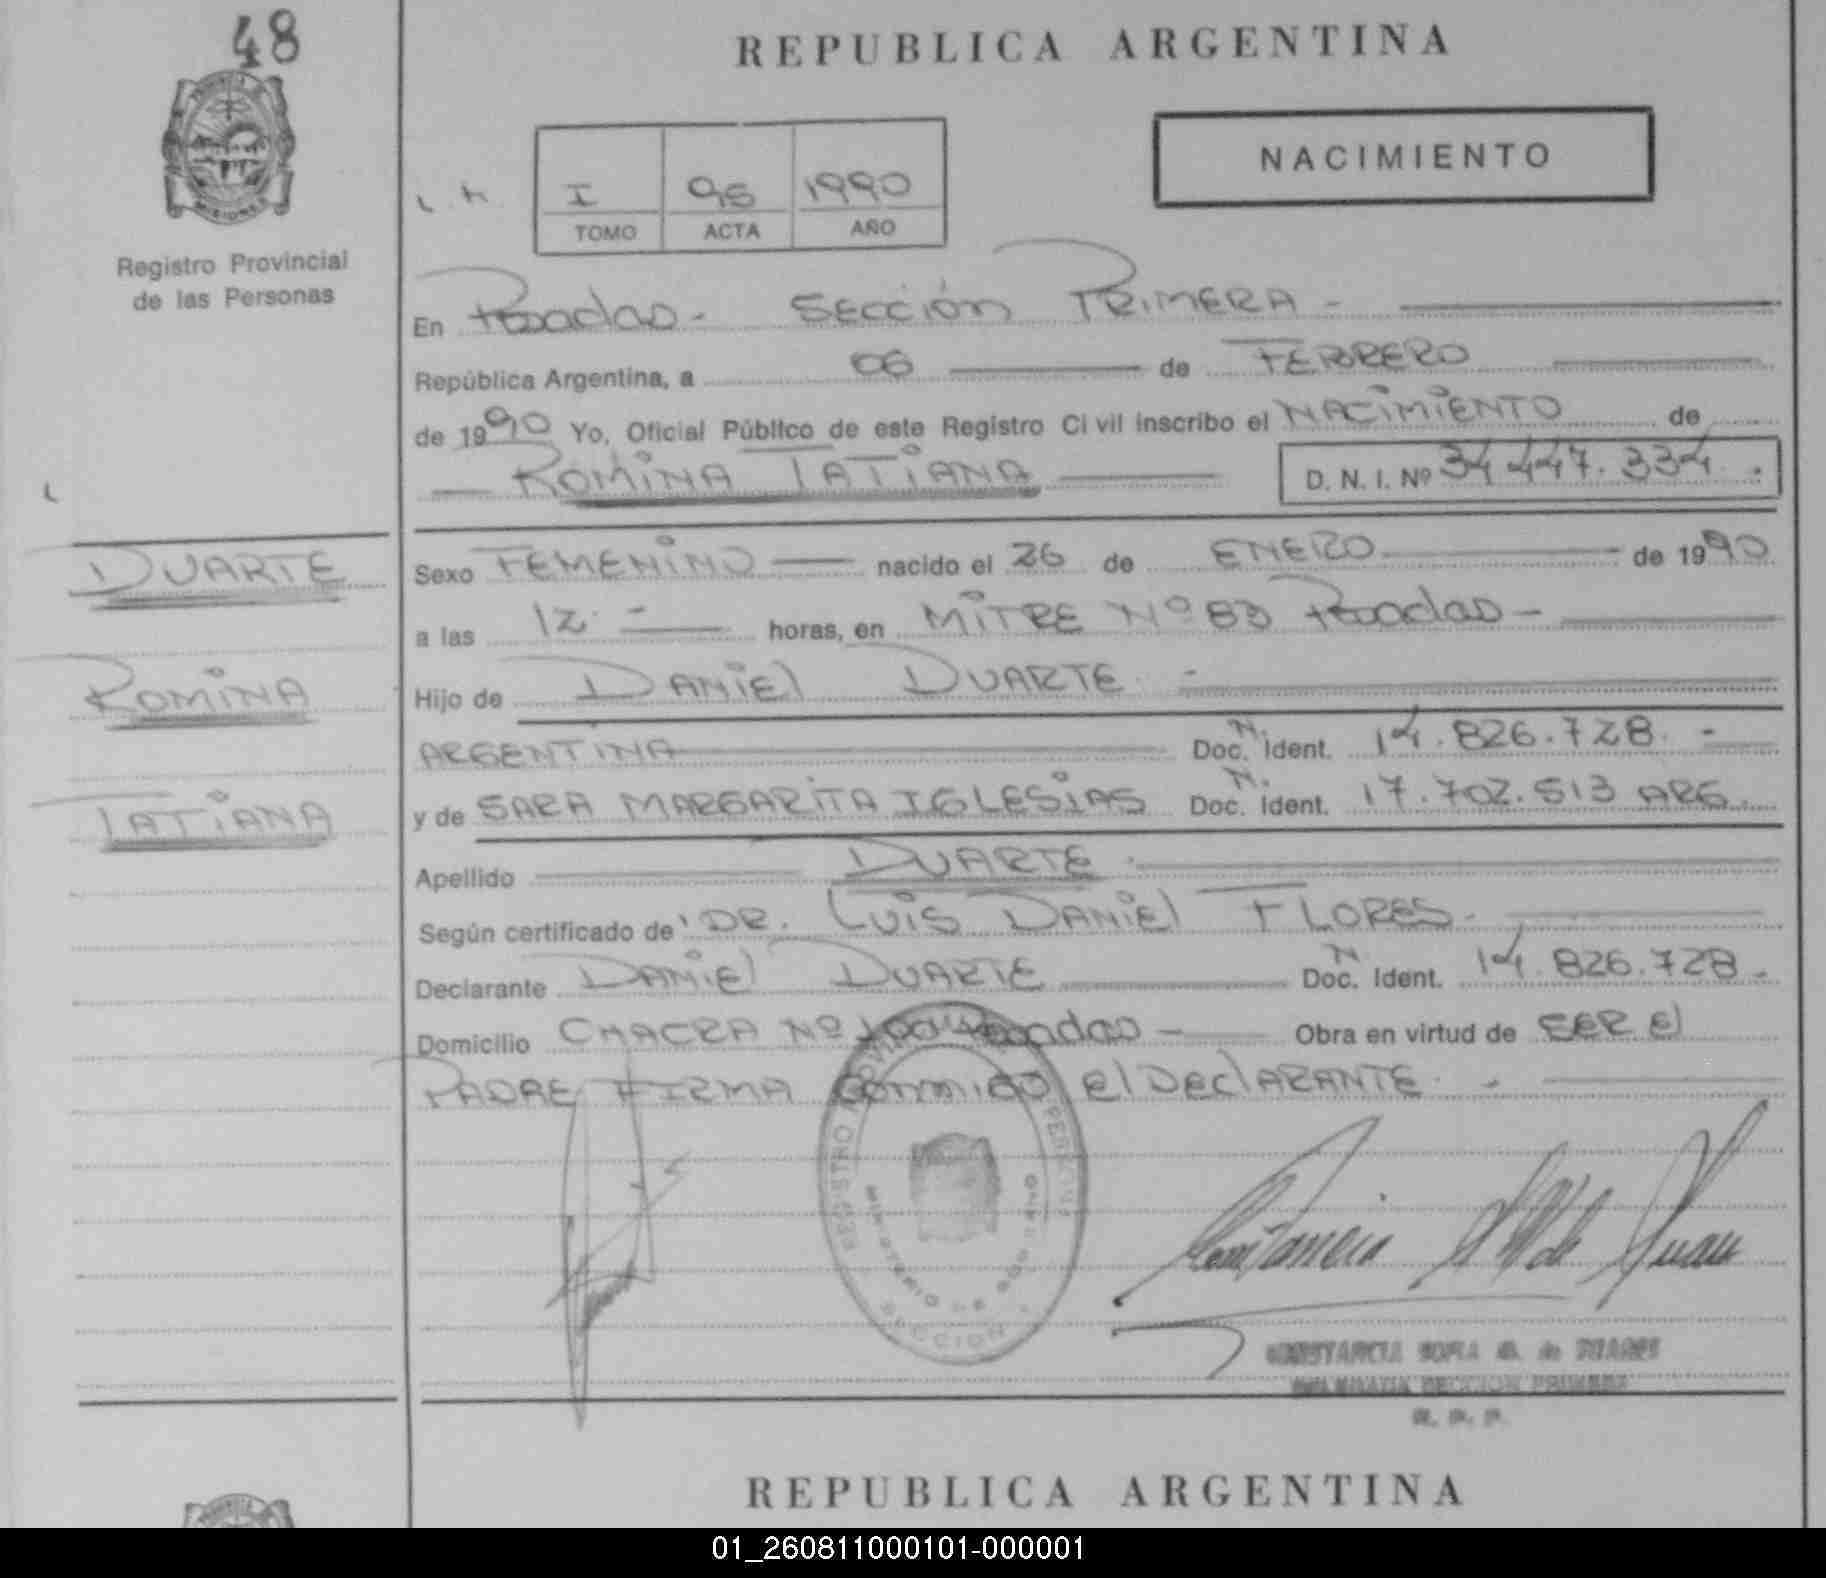 48
REPUBLICA ARGENTINA
NACIMIENTO
I 95 1990
TOMO ACTA AÑO
MISIONES
Registro Provincial
de las Personas
En Posadas - SECCIÓN PRIMERA -
República Argentina, a 06 de FEBRERO
de 1990 Yo, Oficial Público de este Registro Civil inscribo el NACIMIENTO de
ROMINA TATIANA
D. N. I. Nº 34.447.334.
DUARTE
ROMINA
TATIANA
Sexo FEMENINO nacido el 26 de ENERO de 1990
a las 12.- horas, en MITRE Nº 83 Posadas -
Hijo de DANIEL DUARTE -
ARGENTINA N. Doc. Ident. 14.826.728. -
y de SARA MARGARITA IGLESIAS N. Doc. Ident. 17.702.513 ARG.
Apellido DUARTE
Según certificado de DR. LUIS DANIEL FLORES.
Declarante DANIEL DUARTE N Doc. Ident. 14.826.728.
Domicilio CHACRA Nº Posadas - Obra en virtud de SER El
PADRE FIRMA CONMIGO El DEClARANTE. -
REGISTRO
MINISTERIO DE GOBIERNO
SECCION
CONSTANCIA SOFIA G. de SUARES
DELEGADA SECCION PRIMERA
R. P. P.
REPUBLICA ARGENTINA
01_260811000101-000001